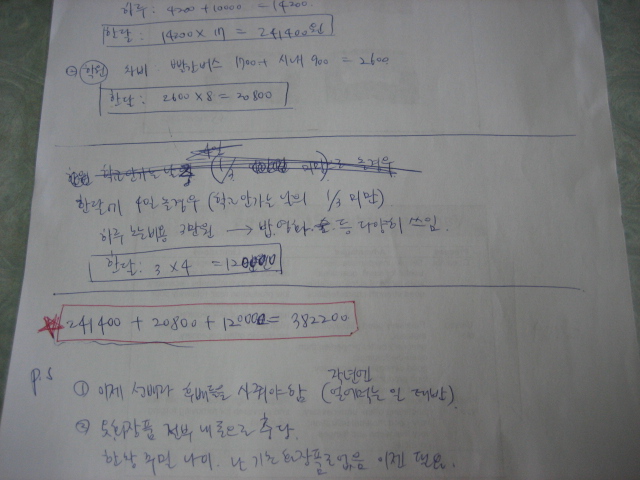 하루: 4200 + 10000 = 14200
한달: 14200 × 17 = 241400원
② 학원 차비 빨간버스 1700 + 시내 900 = 2600
한달: 2600 × 8 = 20800
학교안가는 날
한달에 4번 놀경우 (학교안가는 날의 1/3 미만)
하루 노는비용 3만원 → 밥, 영화, 등 다양히 쓰임.
한달: 3 × 4 = 120000
241400 + 20800 + 120000 = 382200
P.S
① 이제 선배라 후배들을 사줘야함 (작년엔 얻어먹는 인생)
② 화장품 전부 내 돈으로 충당.
한창 꾸밀 나이. 난 기초화장품도 없음 이젠 필요.